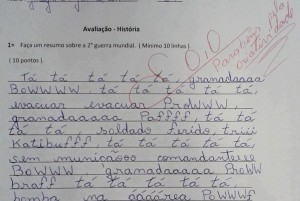 Avaliação - História
1= Faça um resumo sobre a 2° guerra mundial. ( Mínimo 10 linhas ).
( 10 pontos ).
0,0
Parabéns pela criatividade
Tá tá tá tá tá, granadaaaa
BOWWWW tá tá tá tá tá tá,
evacuar evacuar PROWWW,
granadaaaaaa Paffff, tá tá
tá tá tá soldado ferido, triii
Katibufff, tá tá tá tá tá,
sem muniçãoo comandanteeee
BOWWW granadaaaaa PROWW
braff tá tá tá tá tá tá,
bomba na óóóórea POWWWf